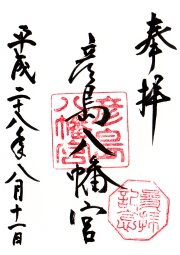 奉拝
彦島八幡宮
彦島
八幡宮
平成二十八年八月十一日